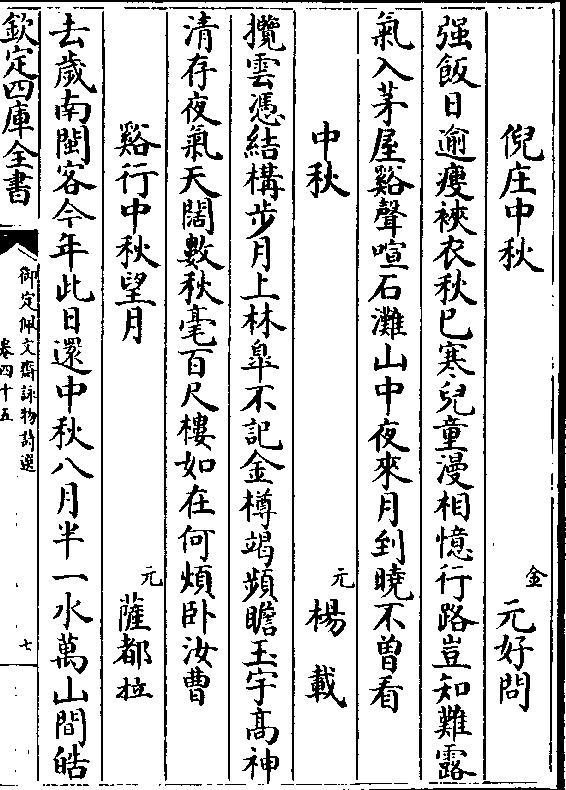 倪庄中秋
金 元好問
强飯日逾瘦裌衣秋已寒兒童漫相憶行路豈知難露
氣入茅屋谿聲喧石灘山中夜來月到曉不曽看
中秋
元 楊載
攬雲憑結構步月上林臯不記金樽竭頻瞻玉宇髙神
清存夜氣天闊數秋毫百尺樓如在何煩卧汝曹
谿行中秋望月
元 薩都拉
去歲南閩客今年此日還中秋八月半一水萬山間皓
欽定四庫全書
御定佩文齋詠物詩選
卷四十五
七